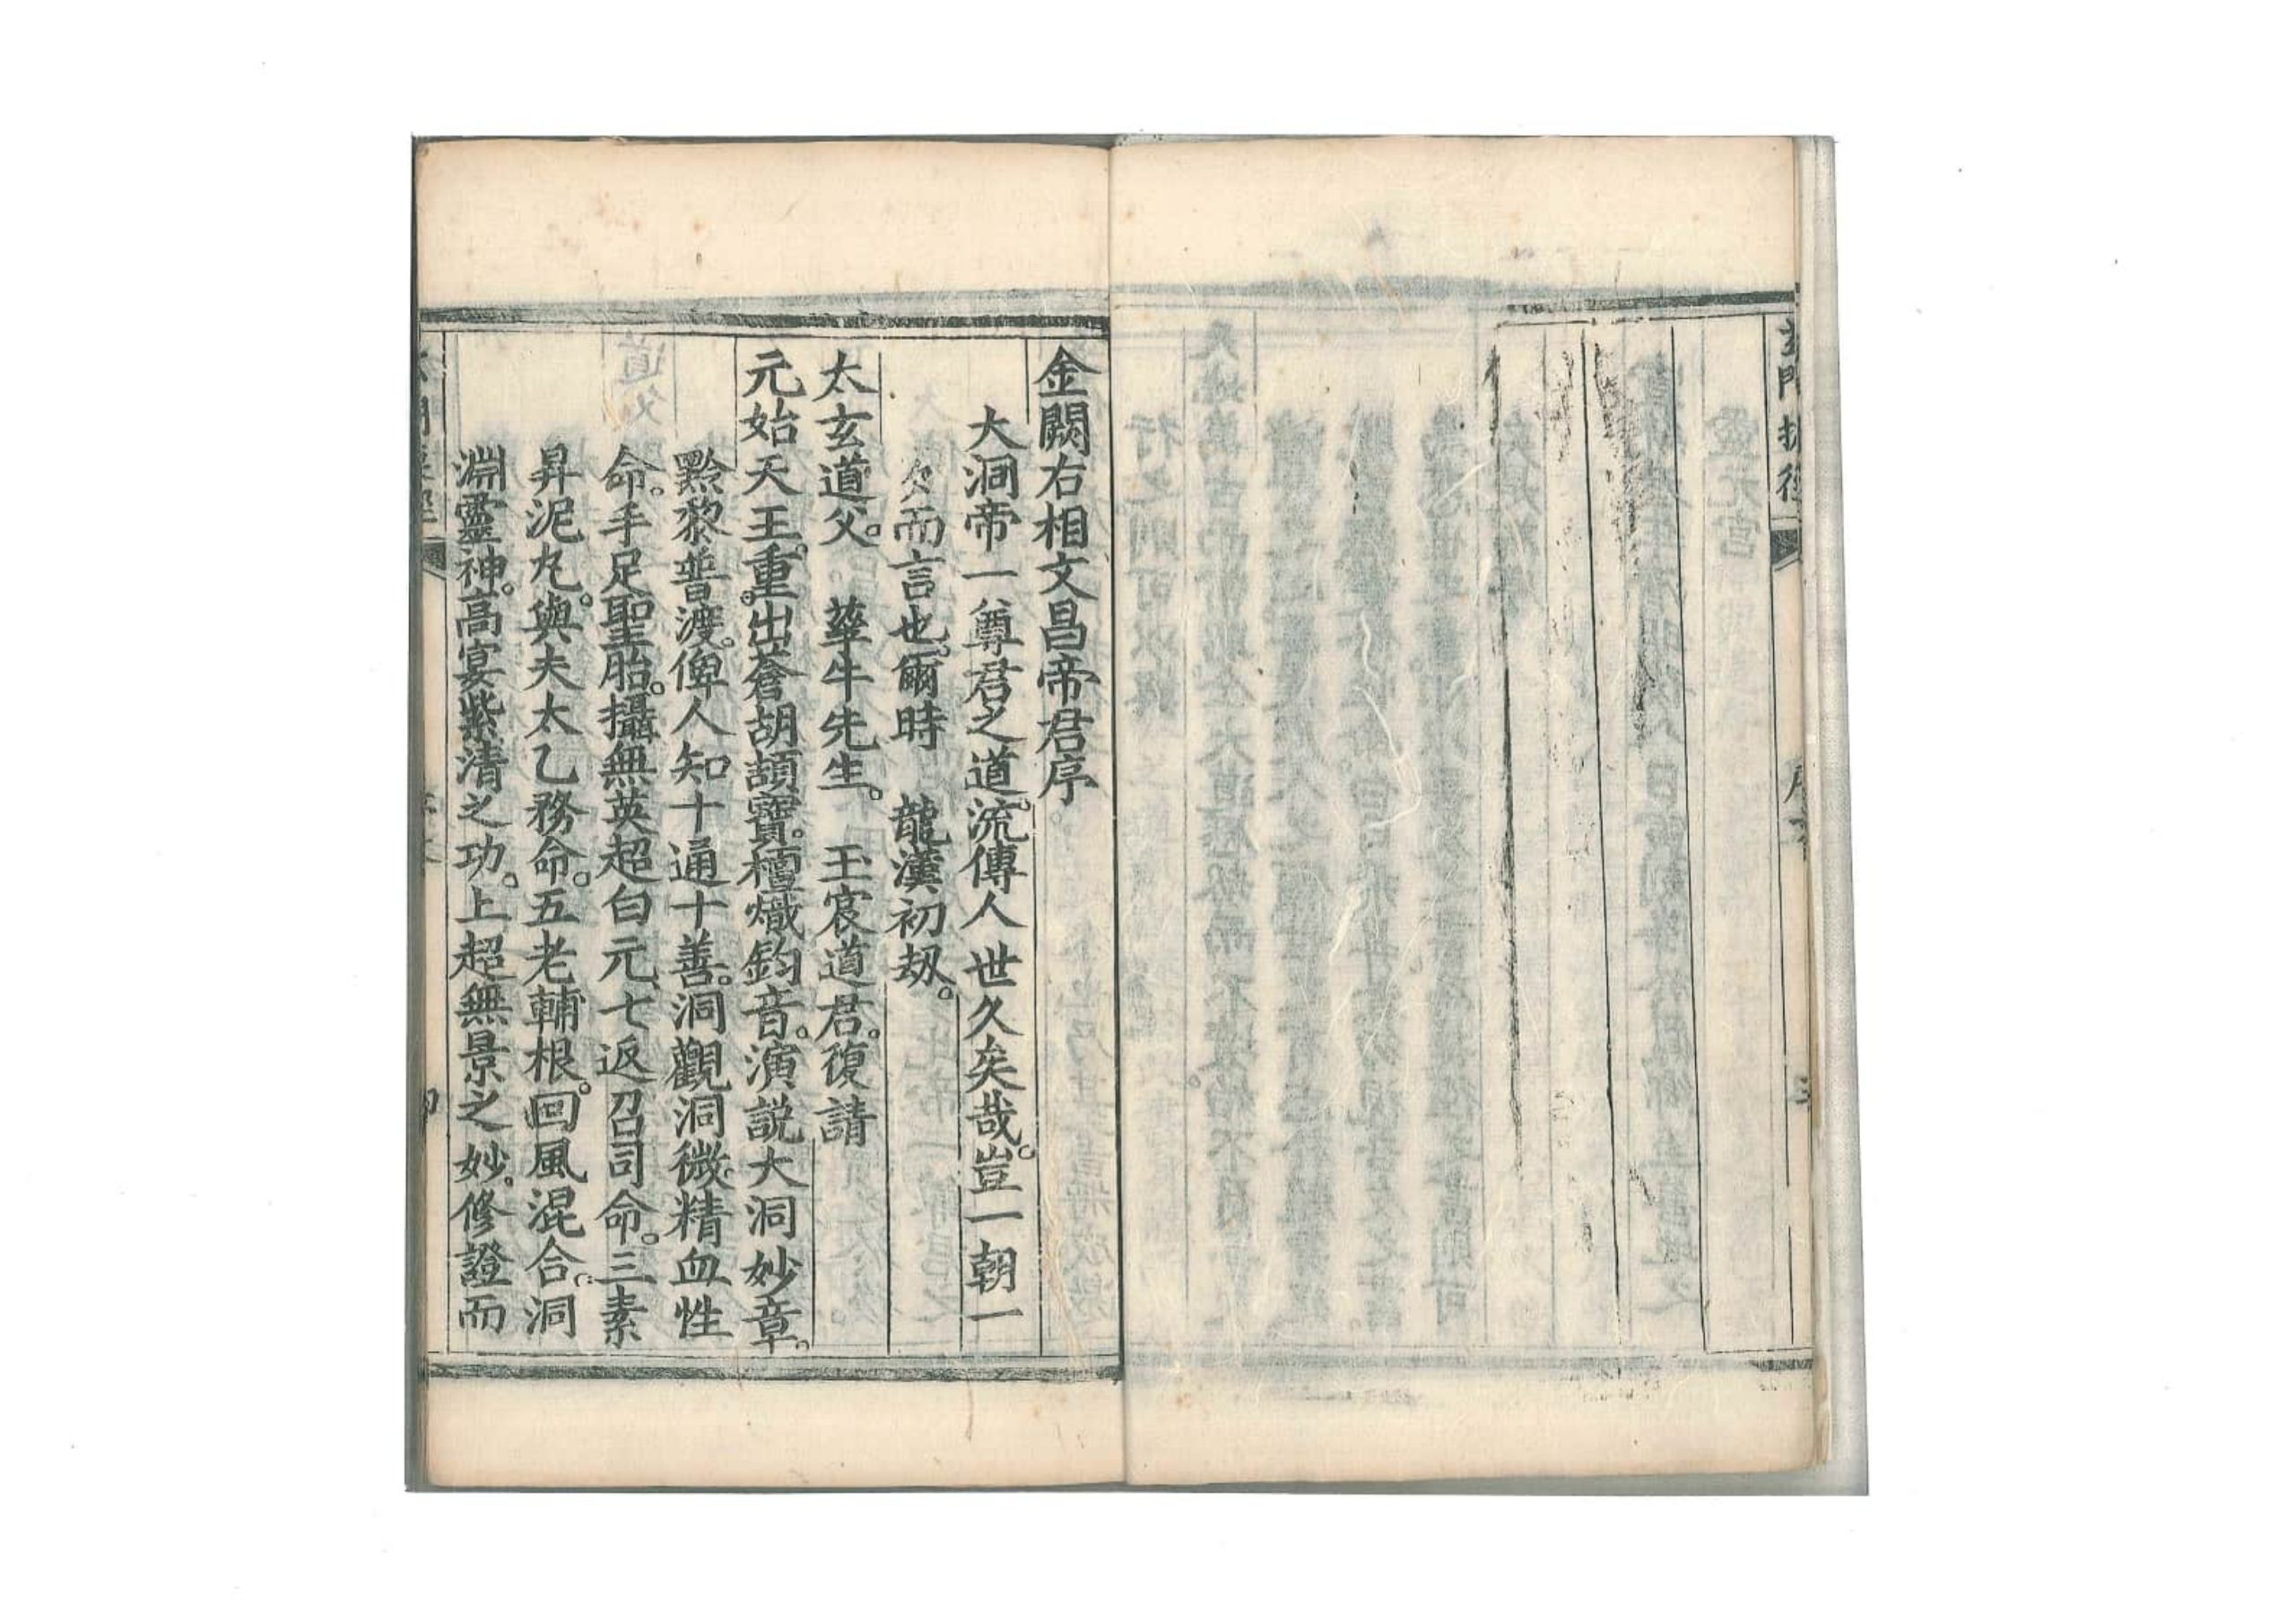 序
金闕右相文昌帝君序
大洞帝一尊君之道。流傳人世久矣哉。豈一朝一
夕而言也。爾時　龍漢初刼。
太玄道父。　𦽦牛先生。　玉宸道君。復請
元始天王。重出蒼胡頡寶。檀熾鈞音。演説大洞妙章。
黔黎普渡。俾人知十通十善。洞觀洞微。精血性
命。手足聖胎。攝無英超白元。七返召司命。三素
昇泥丸。與夫太乙務命。五老輔根。回風混合。洞
淵靈神。高宴紫清之功。上超無景之妙。修證而